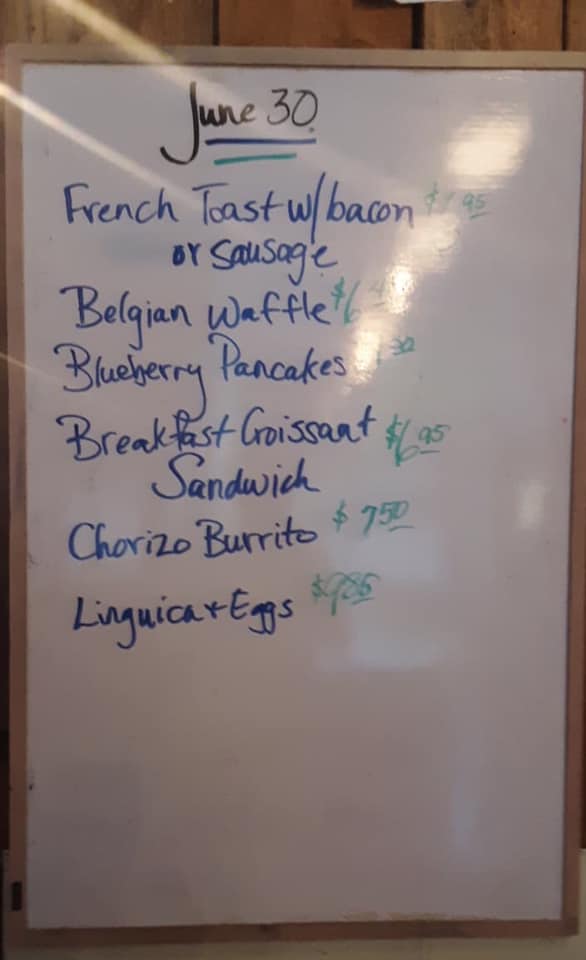 June 30
French Toast w/bacon
or sausage
Belgian Waffle
Blueberry Pancakes
Breakfast Croissant $6.95
Sandwich
Chorizo Burrito $7.50
Linguica + Eggs $9.85